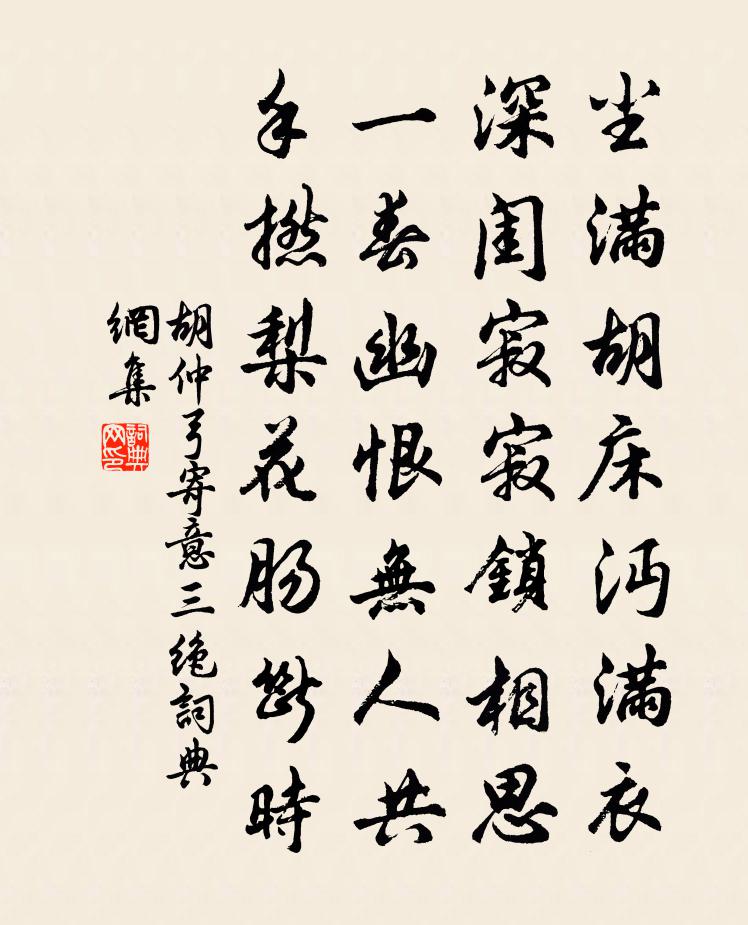 尘满胡床泻满衣
深闺寂寂鎖相思
一春幽恨無人共
手撚梨花肠斷時
胡仲弓寄意三绝詞典
網集
詞典
网印